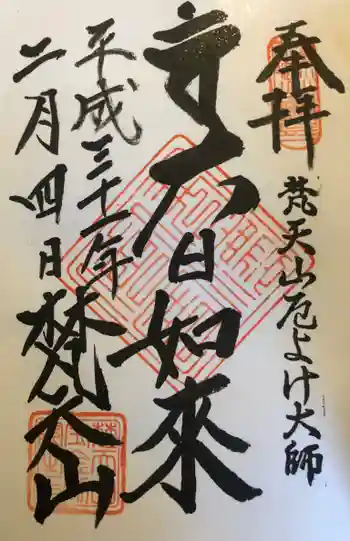 奉拝
梵天山厄よけ大師
大日如來
平成三十一年
二月四日
梵天山